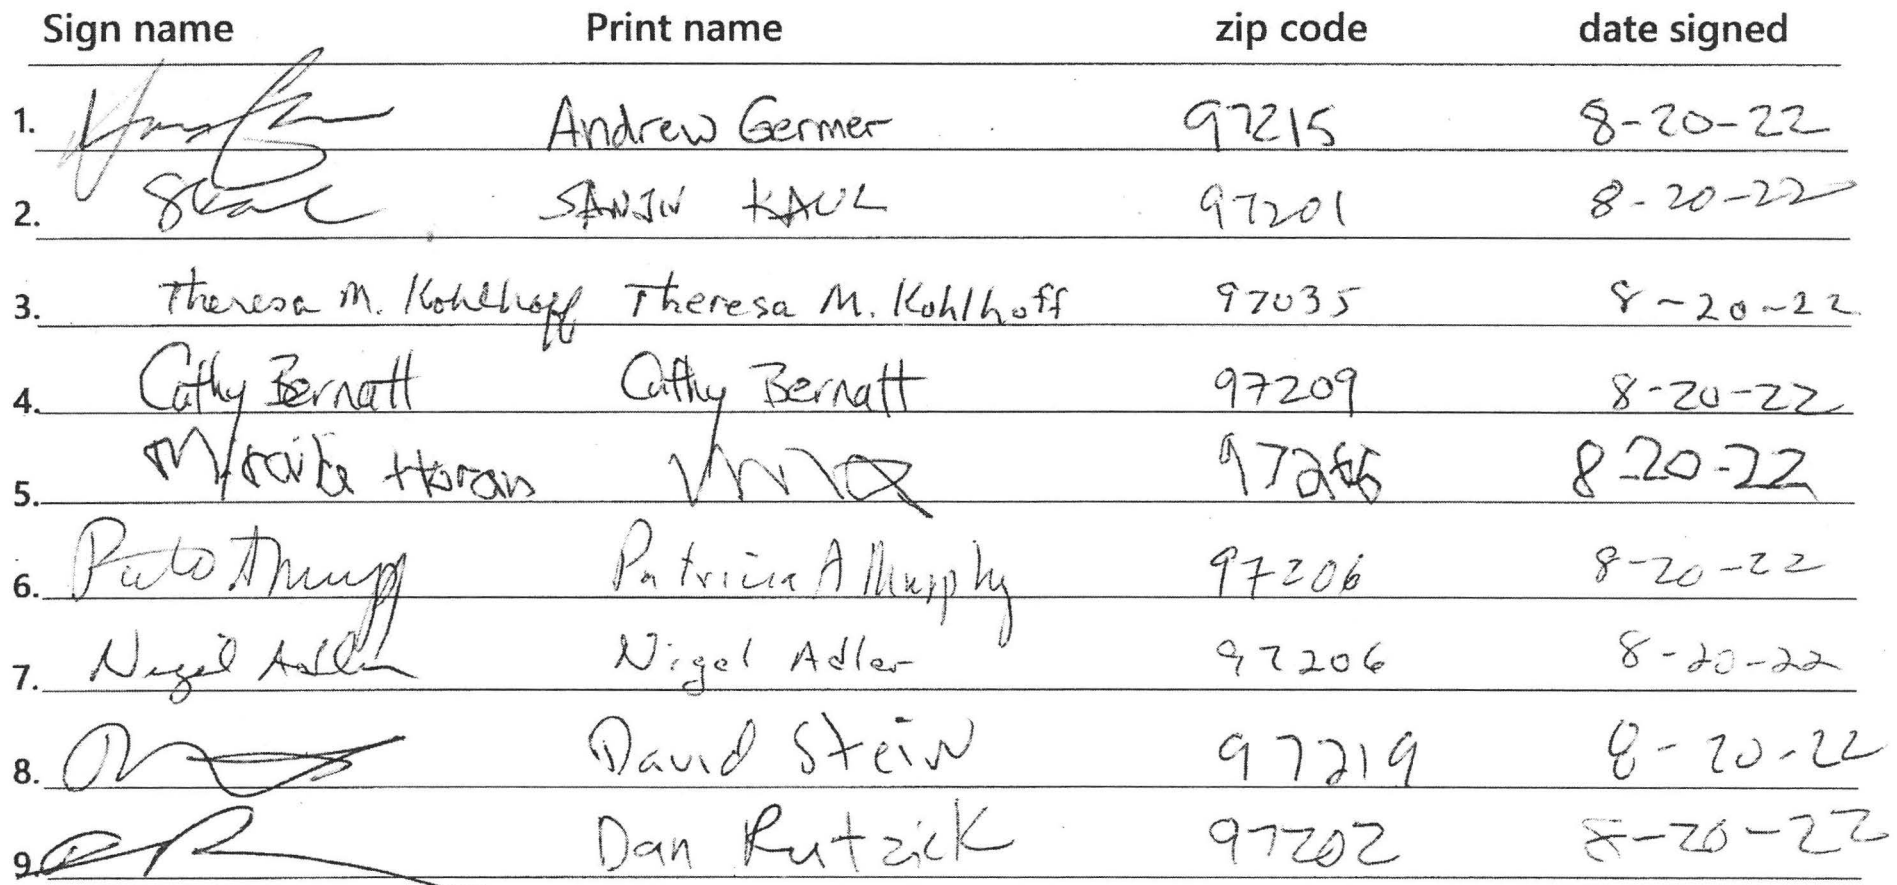 Sign name Print name zip code date signed
1. Andrew Germer 97215 8-20-22
2. SANJIV KAUL 97201 8-20-22
3. Theresa M. Kohlhoff Theresa M. Kohlhoff 97035 8-20-22
4. Cathy Bernatt Cathy Bernatt 97209 8-20-22
5. Horan 8-20-22
6. Patricia A Murphy 97206 8-20-22
7. Nigel Adler Nigel Adler 97206 8-20-22
8. David Stein 97219 8-20-22
9. Dan Rutzick 97202 8-20-22